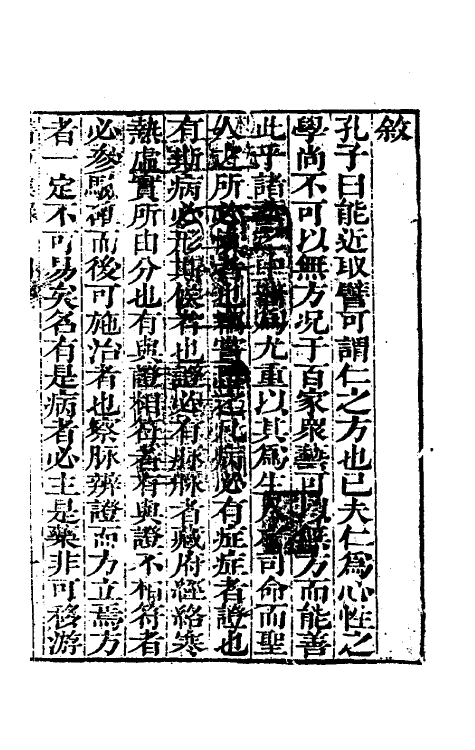 敘
孔子曰能近取譬可謂仁之方也已夫仁為心性之
學尚不可以無方况于百家衆藝可以無方而能善
此乎諸藝之中醫為尤重以其為生人之司命而聖
人之所必慎者也凡病必有症症者證也
有斯病必形斯候者也證必有脉脉者臟府經絡寒
熱虛實所由分也有與證相符者有與證不相符者
必參驗確而後可施治者也察脉辨證而方立焉方
者一定不可易矣名有是病者必主是藥非可移游